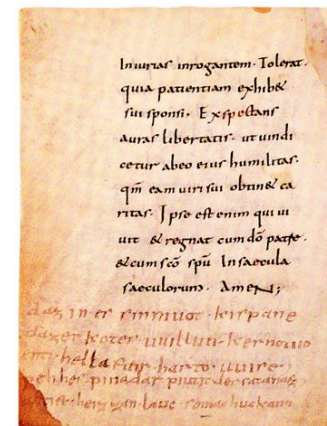 Iniurias inrogantem. Tolerat.
quia patientiam exhibet
sui sponsi. Expectans
auras libertatis. ut uindi
cetur abeo eius humilitas.
qm̄ eam uiri sui obtinet ca
ritas. Ipse est enim qui ui
uit & regnat cum dō patre.
& cum scō spū In saecula
saeculorum. Amen;
daz in er kirpane
dazer koter uuillun kerno
enti hella harto uuiregi
pina dar piutit der satanaz
heizzan lauc